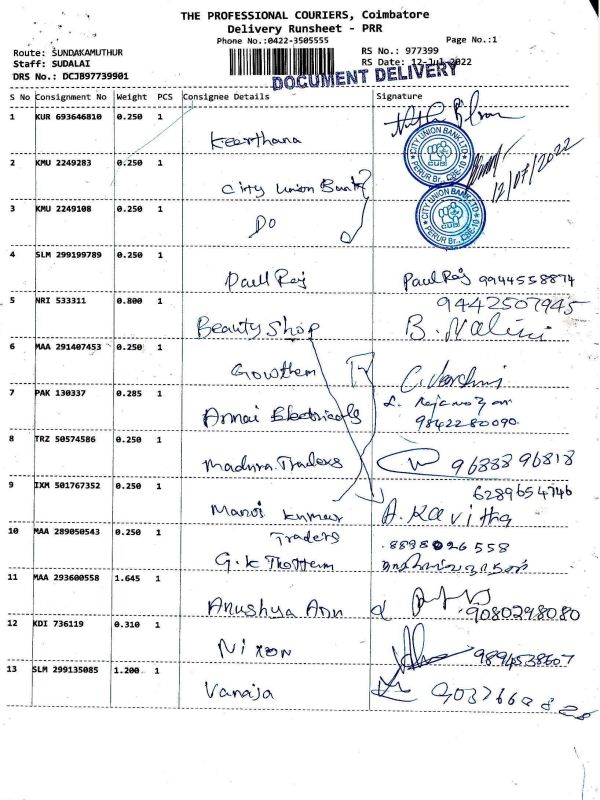 THE PROFESSIONAL COURIERS, Coimbatore
Delivery Runsheet - PRR
Phone No.:0422-3505555
Page No.:1
Route: SUNDAKAMUTHUR
RS No.: 977399
Staff: SUDALAI
RS Date: 12-Jul-2022
DRS No.: DCJB97739901
DOCUMENT DELIVERY
S No Consignment No Weight PCS Consignee Details Signature
1 KUR 693646810 0.250 1 Keerthana
2 KMU 2249283 0.250 1 City Union Bank
CITY UNION BANK LTD
PERUR Br., CBE-10
12/07/2022
3 KMU 2249108 0.250 1 Do
CITY UNION BANK LTD
PERUR Br., CBE-10
4 SLM 299199789 0.250 1 Paul Raj Paul Raj 9944558874
5 NRI 533311 0.800 1 Beauty Shop 9442507945
B. Nalini
6 MAA 291407453 0.250 1 Gowthem
7 PAK 130337 0.285 1 Annai Electricals
9842280090
8 TRZ 50574586 0.250 1 Madura Traders 96888 96818
9 IXM 501767352 0.250 1 Manoj Kumar 6289654746
A. Kavitha
10 MAA 289050543 0.250 1 Traders
G.K Thottem 8898026558
11 MAA 293600558 1.645 1 Anushya Ann 9080298080
12 KDI 736119 0.310 1 Nixon 9894538607
13 SLM 299135085 1.200 1 Vanaja